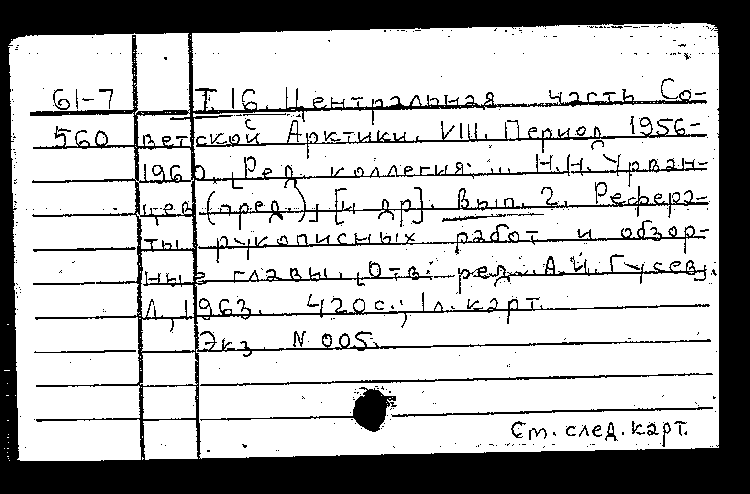 61-7 Т. 16. Центральная часть Со-
560 ветской Арктики. VIII. Период 1956-
1960. [Ред. коллегия: ... Н.Н. Урван-
цев (пред.)] [и др]. Вып. 2. Рефера-
ты рукописных работ и обзор-
ные главы. [Отв. ред. А.И. Гусев].
Л., 1963. 420 с.; 1 л. карт.
Экз. N 005.
См. след. карт.